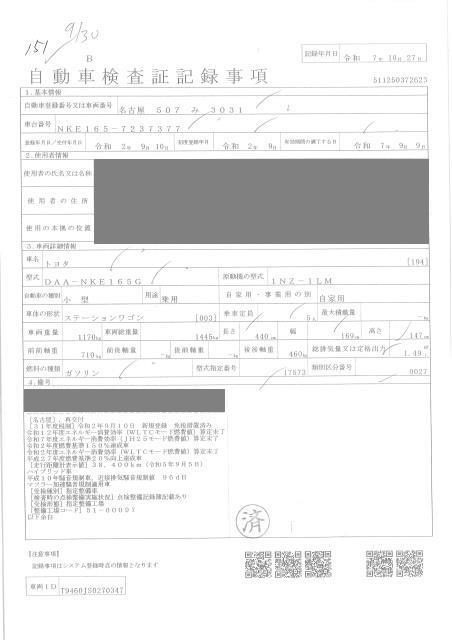 151
9/30
B
記録年月日 令和 7年10月27日
自動車検査証記録事項
511250372623
1.基本情報
自動車登録番号又は車両番号 名古屋 507 み 3031
車台番号 NKE165-7237377
登録年月日/交付年月日 令和 2年 9月10日 初度登録年月 令和 2年 9月 有効期間の満了する日 令和 7年 9月 9日
2.使用者情報
使用者の氏名又は名称
使用者の住所
使用の本拠の位置
3.車両詳細情報
車名 トヨタ [194]
型式 DAA-NKE165G 原動機の型式 1NZ-1LM
自動車の種別 小型 用途 乗用 自家用・事業用の別 自家用
車体の形状 ステーションワゴン [003] 乗車定員 5人 最大積載量 -kg
車両重量 1170kg 車両総重量 1445kg 長さ 440cm 幅 169cm 高さ 147cm
前前軸重 710kg 前後軸重 -kg 後前軸重 -kg 後後軸重 460kg 総排気量又は定格出力 1.49
燃料の種類 ガソリン 型式指定番号 17573 類別区分番号 0027
4.備考
[名古屋], 再交付
[31年度税制] 令和2年9月10日 新規登録 免税措置済み
令和12年度エネルギー消費効率(WLTCモード燃費値)算定未了
令和7年度エネルギー消費効率(JH25モード燃費値)算定未了
令和2年度燃費基準150%達成車
令和2年度エネルギー消費効率(WLTCモード燃費値)算定未了
平成27年度燃費基準20%向上達成車
[走行距離計表示値] 38,400km (令和5年9月5日)
ハイブリッド車
平成10年騒音規制車, 近接排気騒音規制値 96dB
マフラー加速騒音規制適用車
[受検種別] 指定整備車
[検査時の点検整備実施状況] 点検整備記録簿記載あり
[受検形態] 指定整備工場
[整備工場コード] 51-00097
以下余白
済
[注意事項]
記録事項はシステム登録時点の情報となります
車両ID T9460JS0270347